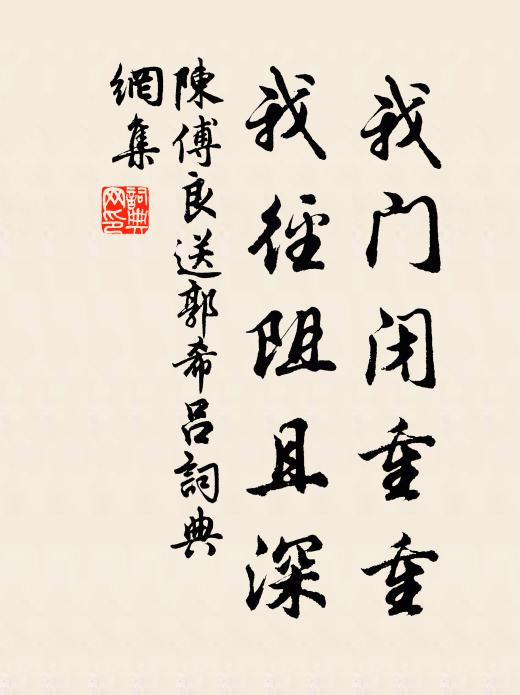 我门闭重重
我径阻且深
陳傅良送郭希呂詞典
網集
詞典網印